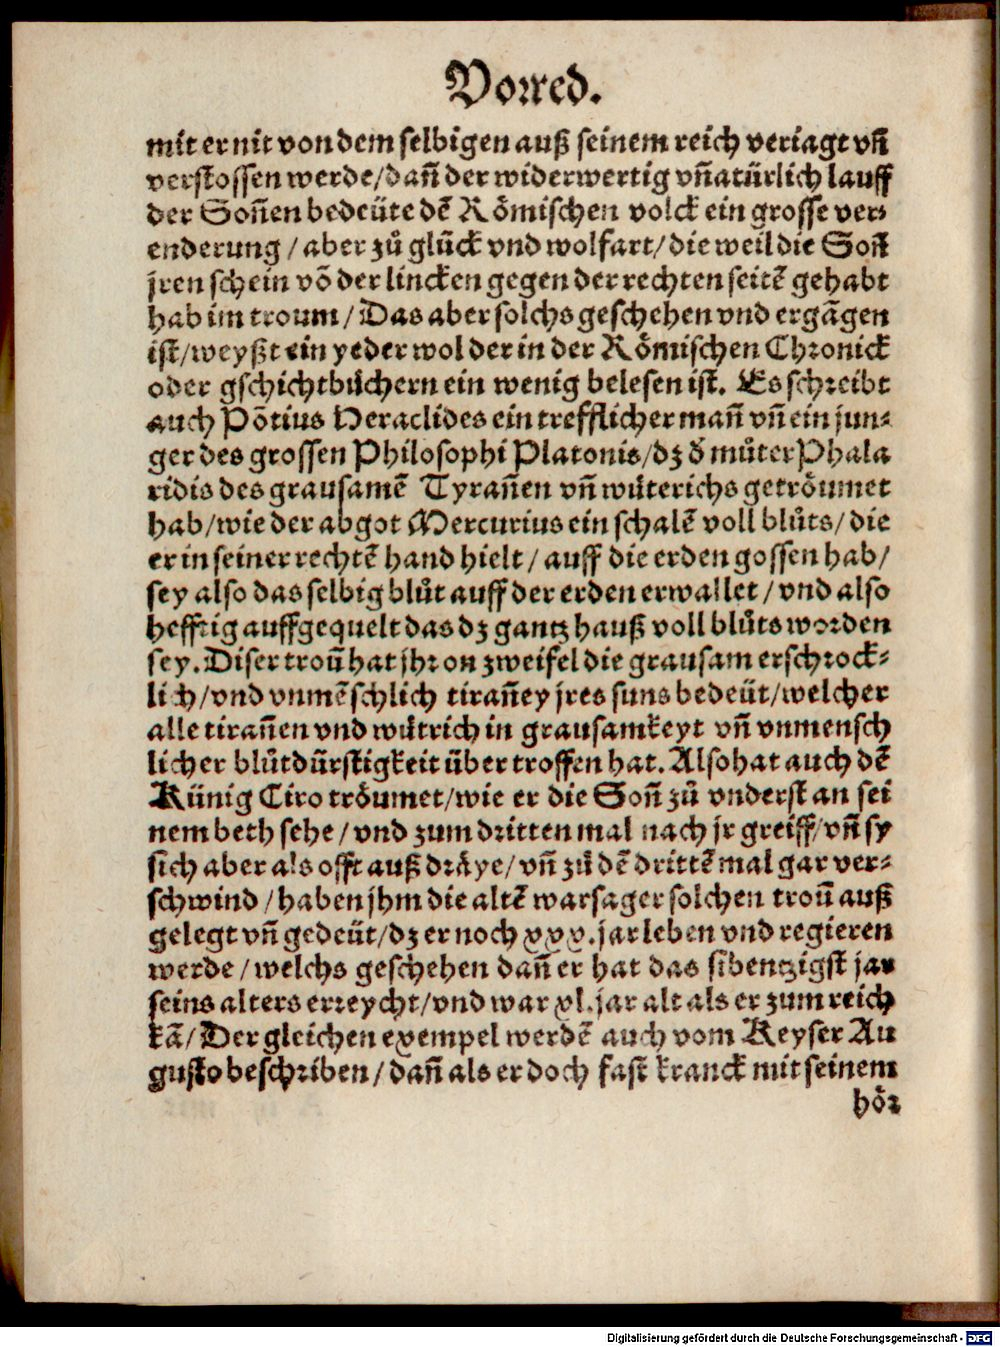 Vorred.
mit er nit von dem selbigen auß seinem reich veriagt vñ
verstossen werde/dañ der widerwertig vñatürlich lauff
der Soñen bedeüte dẽ Römischen volck ein grosse ver-
enderung/aber zů glück vnd wolfart/die weil die Soñ
jren schein võ der lincken gegen der rechten seitẽ gehabt
hab im troum/Das aber solchs geschehen vnd ergãgen
ist/weyßt ein yeder wol der in der Römischen Chronick
oder gschichtbüchern ein wenig belesen ist. Es schreibt
auch Põtius Heraclides ein trefflicher mañ vñ ein jun-
ger des grossen Philosophi Platonis/dz d̕ můter Phala
ridis des grausamẽ Tyrañen vñ wüterichs getröumet
hab/wie der abgot Mercurius ein schalẽ voll blůts/die
er in seiner rechtẽ hand hielt/auff die erden gossen hab/
sey also das selbig blůt auff der erden erwallet/vnd also
hefftig auffgequelt das dz gantz hauß voll blůts worden
sey. Diser troũ hat jhr on zweifel die grausam erschrock-
lich/vnd vnmẽschlich tirañey jres suns bedeüt/welcher
alle tirañen vnd wütrich in grausamkeyt vñ vnmensch
licher blůtdürstigkeit über troffen hat. Also hat auch dẽ
Künig Ciro tröumet/wie er die Soñ zů vnderst an sei
nem beth sehe/vnd zum dritten mal nach jr greiff/vñ sy
sich aber als offt auß dräye/vñ zů dẽ drittẽ mal gar ver-
schwind/haben jhm die altẽ warsager solchen troũ auß
gelegt vñ gedeüt/dz er noch xxx. jar leben vnd regieren
werde/welchs geschehen dañ er hat das sibentzigst jar
seins alters erreycht/vnd war xl. jar alt als er zum reich
kã/Der gleichen exempel werdẽ auch vom Keyser Au
gusto beschriben/dañ als er doch fast kranck mit seinem
hör
Digitalisierung gefördert durch die Deutsche Forschungsgemeinschaft - DFG